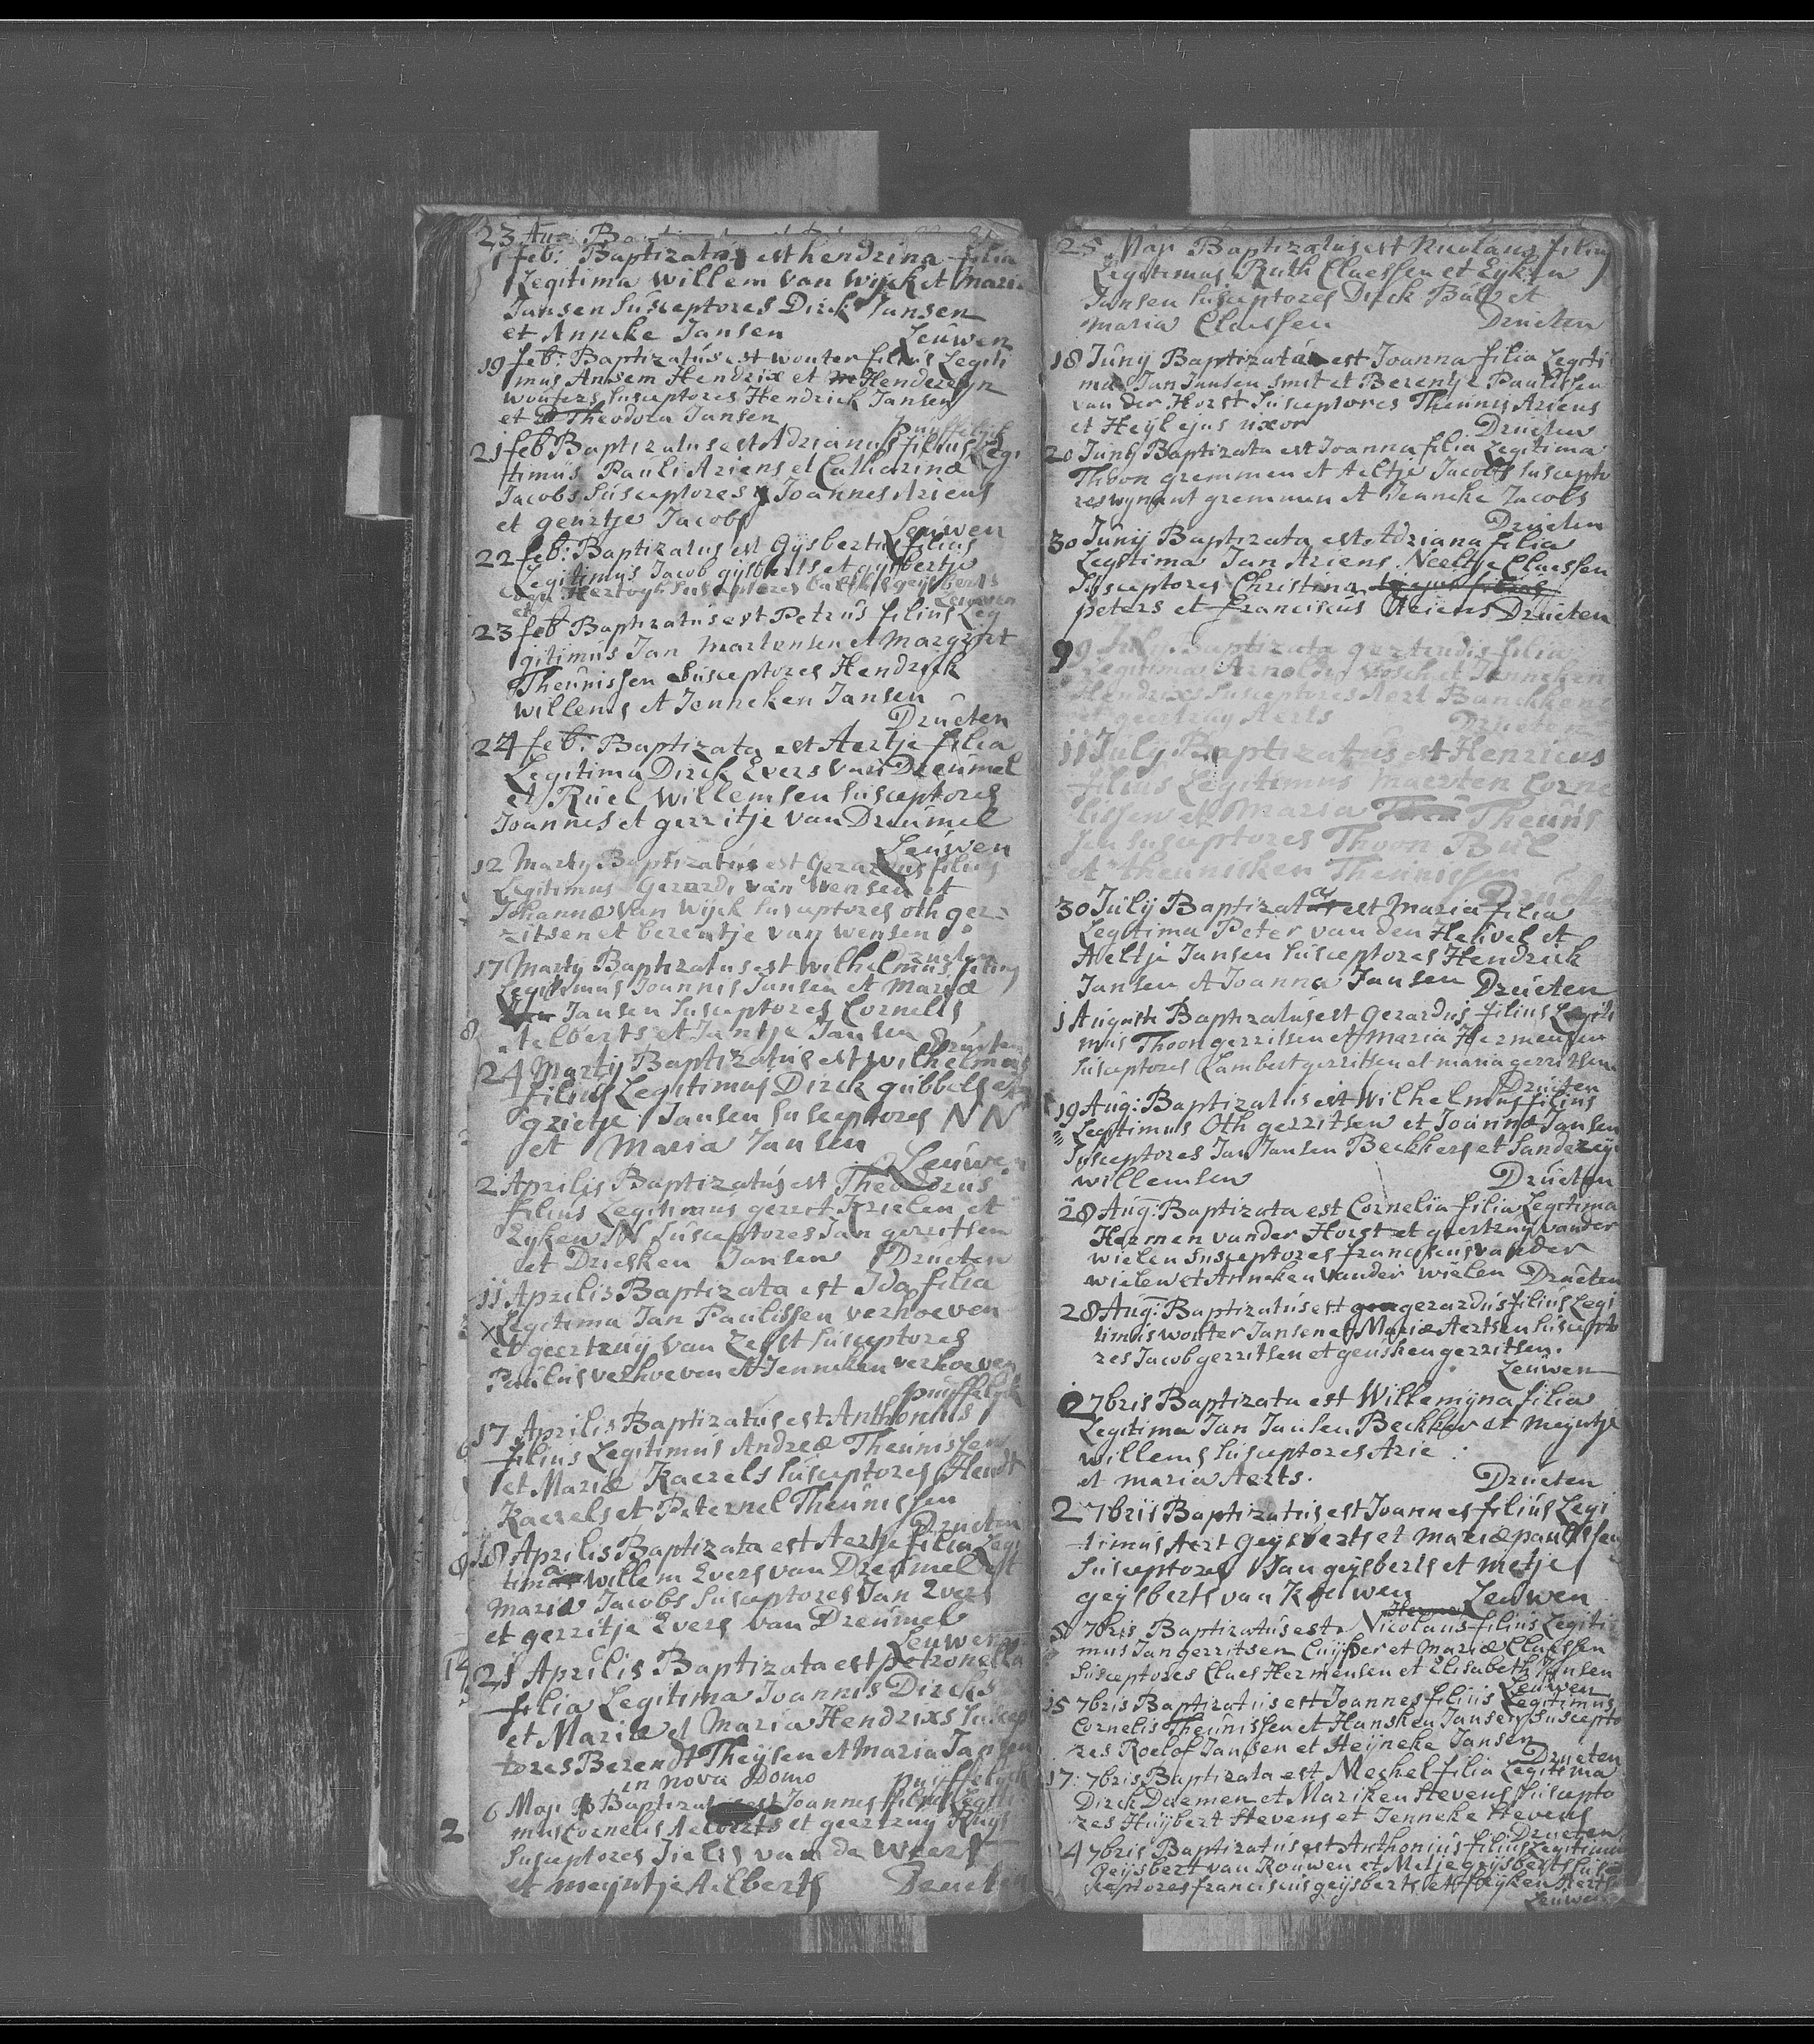 23 Aug: Ba
1 feb: Baptizata est hendrina filia
Legitima Willem van Wijck et Maria
Jansen Susceptores Dirck Jansen
et Anneke Jansen Leuwen
19 feb: Baptizatus est wouter filius Legiti
mus Ansem Hendrix et Hendersyn
Wouters Susceptores Hendrick Jansen
et Theodora Jansen
puyffelijk
21 feb Baptizatus est Adrianus filius Legi
timus Pauli Ariens et Catharinæ
Jacobs Susceptores Joannes Ariens
et geurtje Jacobs Leuwen
22 feb: Baptizatus est Gijsbertus filius
Legitimus Jacob gijsberts et gijsbertje
Hertogh Susceptores geijsberts
et Leuwen
23 feb Baptizatus est Petrus filius Leg
gitimus Jan Martensen et Margriet
Theunissen Susceptores Hendrick
Willems et Jenneken Jansen
Drueten
24 feb: Baptizata est Aertje filia
Legitima Dirck Evers van Dreumel
et Ruel Willemsen Susceptores
Joannes et gerritje van Dreumel
Leuwen
12 Martij Baptizatus est Gerardus filius
Legitimus Gerardi van Wensen et
Johannæ van Wijck Susceptores oth ger=
ritsen et berentje van wensen
Drueten
17 Martij Baptizatus est wilhelmus filius
Legitimus Joannis Jansen et Mariæ
Jansen Susceptores Cornelis
Aelberts et Jantje Jansen Drueten
24 Martij Baptizatus est wilhelmus
filius Legitimus Dirck gubbels et
grietje Jansen Susceptores NN
et Maria Jansen
Leuwen
2 Aprilis Baptizatus est Theodorus
filius Legitimus gerrit Krielen et
Eyken N Susceptores Jan gerritsen
et Driesken Jansen Drueten
11 Aprilis Baptizata est Ida filia
x Legitima Jan Paulissen verhoeven
et geertruij van Zelst Susceptores
Paulus verhoeven et Jenneken verhoeven
puijffelijk
17 Aprilis Baptizatus est Anthonius
filius Legitimus Andreæ Theunissen
et Mariæ Kaerels Susceptores Hendr
Kaerels et Peternel Theunissen
Drueten
18 Aprilis Baptizata est Aertje filia Legi
tima Willem Evers van Dreumel et
Maria Jacobs Susceptores Jan Evers
et gerritje Evers van Dreumel
Leuwen
21 Aprilis Baptizata est petronella
filia Legitima Joannis Dircks
et Mariæ et Maria Hendrixs Suscep
tores Berendt Theijsen et Maria Jansen
in nova Domo puijffelijck
6 Maji Baptizatus est Joannes filius Legiti
mus Cornelis Aelberts et geertruy Thijs
Susceptores Jielis van de Weert
et meijntje Aelberts Drueten
25 Maji Baptizatus est Nicolaus filius
Legitimus Ruth Claessen et Eyken
Jansen Susceptores Dirck Bul et
Maria Claessen Drueten
18 Junij Baptizata est Joanna filia Legiti
ma Jan Jansen Smit et Berentje Paulissen
van der Horst Susceptores Theunis Ariens
et Heyl ejus uxor Drueten
20 Junij Baptizata est Joanna filia Legitima
Thoon gremmen et Aeltje Jacobs Suscepto
res wynant gremmen et Jenneke Jacobs
Drueten
30 Junij Baptizata est Adriana filia
Legitima Jan Ariens Neeltje Claessen
Susceptores Christina
peters et Franciscus Ariens Drueten
9 July Baptizata gertrudis filia
Legitima Arnoldus et Jenneken
Hendrixs Susceptores Aert Banckken
et geertruy Aerts Drueten
11 July Baptizatus est Henricus
filius Legitimus Maerten Corne
lissen et Maria Theunis
sen Susceptores Thoon Bul
et theunisken Theunissen
Drueten
30 Julij Baptizata est Maria filia
Legitima Peter van den Heuvel et
Aeltje Jansen Susceptores Hendrick
Jansen et Joanna Jansen Drueten
1 Augusti Baptizatus est Gerardus filius Legiti
mus Thoon gerritsen et Maria Hermensen
Susceptores Lambert gerritsen et maria gerritsen
Drueten
19 Aug: Baptizatus est Wilhelmus filius
Legitimus Oth gerritsen et Joannæ Jansen
Susceptores Jan Jansen Beckkers et Sanderijn
willemsen Drueten
28 Aug: Baptizata est Cornelia filia Legitima
Hermen vander Horst et geertruy vander
wielen Susceptores franciscus vander
wielen et Anneken vander wielen Drueten
28 Aug: Baptizatus est gerardus filius Legi
timus wouter Jansen et Mariæ Aertsen Suscepto
res Jacob gerritsen et geusken gerritsen.
Leuwen
2 7bris Baptizata est Willemijna filia
Legitima Jan Jansen Beckker et meyntje
willems Susceptores Arie
et maria Aerts. Drueten
2 7bris Baptizatus est Joannes filius Legi
timus Aert Geysberts et mariæ paulissen
Susceptores Jan geysberts et metje
geysberts van Kouwen Leuwen
5 7bris Baptizatus est Nicolaus filius Legiti
mus Jan gerritsen Cuijper et Mariæ Claessen
Susceptores Claes Hermensen et Elisabeth Jansen
Leuwen
15 7bris Baptizatus est Joannes filius Legitimus
Cornelis Theunissen et Hansken Jansen Suscepto
res Roelof Jansen et Heijneke Jansen
Drueten
17: 7bris Baptizata est Mechel filia Legitima
Dirck Daemen et Mariken Stevens Suscepto
res Huijbert Stevens et Jenneke Stevens
Drueten
24 7bris Baptizatus est Anthonius filius Legitimus
Geijsbert van Rouwen et Metje geijsberts Sus
ceptores franciscus geijsberts et Heijken Aerts
Leuwen